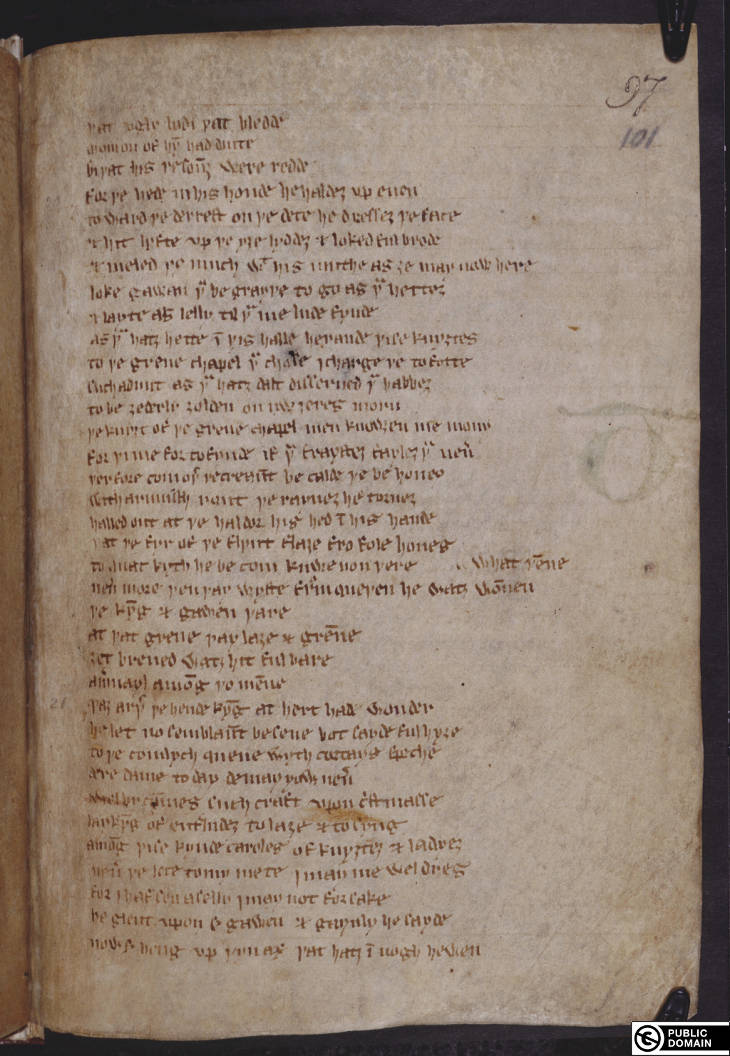 97
101
þat vgly bodi þat bledde
moni on of hȳ had doute
bi þat his resoūz were redde
for þe hede in his honde he haldez vp euen
to ward þe derrest on þe dece he dressez þe face
& hit lyfte vp þe yȝe lyddez & loked ful brode
& meled þus much wt his muthe as ȝe may now here
loke gawan þu be grayþe to go as þu hettez
& layte as lelly til þu me lude fynde
as þu hatz hette ī þis halle herande þise knyȝtes
to þe grene chapel þu chose I charge þe to fotte
such a dunt as þu hatz dalt disserued þu habbez
to be ȝederly ȝolden on nw ȝeres morn
þe knyȝt of þe grene chapel men knowen me mony
for þi me for to fynde if þu fraystez faylez þu neū
þer fore com oþer recreaūt be calde þe be houeȝ
with a runisch rout þe raynez he tornez
halled out at þe hal dor his hed ī his hande
þat þe fyr of þe flynt flaȝe fro fole houes
to quat kyth he be com knwe non þere
neū more þen þay wyste frām queþen he watz wōnen
What þēne
þe kȳg & gawen þare
at þat grene þay laȝe & grēne
ȝet breued watz hit ful bare
a mūayl amōg þo mēne
þaȝ arþer þe hende kȳg at hert had wonder
he let no semblaūt be sene bot sayde ful hyȝe
to þe comlych quene wyth cortays speche
dere dame to day demay yow neū
wel by cōmes such craft vpon cristmasse
laykȳg of enterludez to laȝe & to syng
amōg þise kynde caroles of knyȝtez & ladyez
neū þe lece to my mete I may me wel dres
for I haf sen a selly I may not for sake
he glent vpon sr gawen & gaynly he sayde
now sr heng vp þyn ax þat hatz ī nogh hewen
PUBLIC
DOMAIN